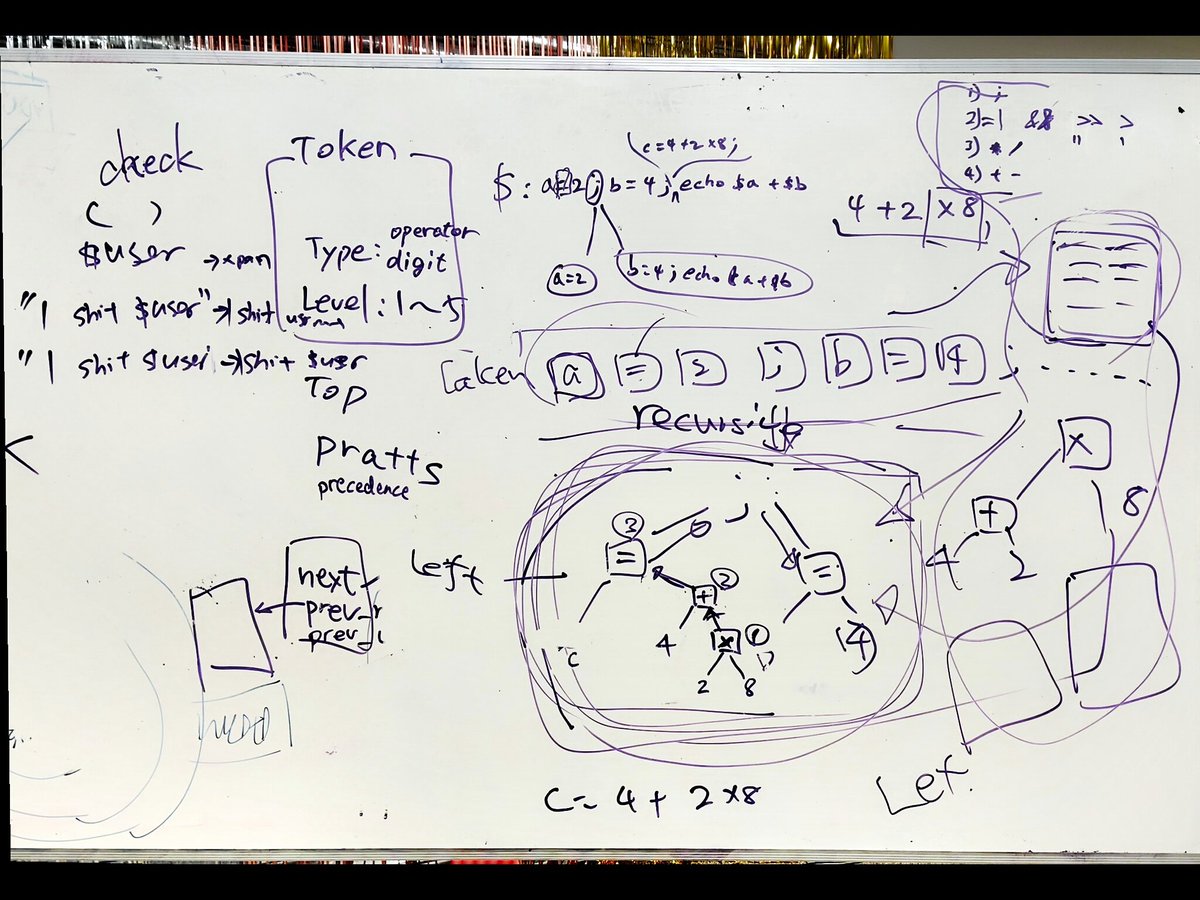 check
( )
$user
"I shit $user" → shit
"I shit $user → shit $user
Token
Type: operator
digit
Level: 1~5
Top
Pratts
precedence
c=4+2×8;
$: a=2; b=4; echo $a+$b
a=2
b=4; echo $a+$b
1) ;
2) = | && >> >
3) * /
4) + -
4+2 ×8
a = 2 ; b = 4
recursive
×
+ 8
4 2
next
prev
prev
Left
;
3
= =
2
+
4 × 1
c 2 8 4
c = 4 + 2 × 8
Lex